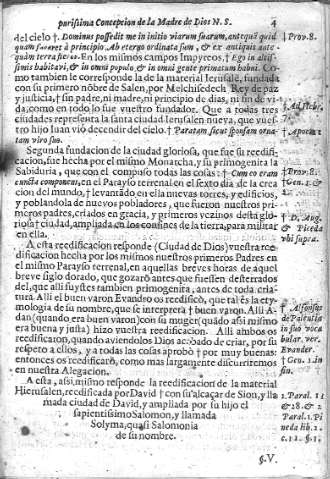 purissima Concepcion de la Madre de Dios N. S. 4
del cielo †. Dominus possedit me in initio viarum suarum, antequã quid
quam faceret à principio. Ab æterno ordinata sum, & ex antiquis ante-
quam terra fieret. En los mismos campos Impyreos, † Ego in altis-
simis habitavi, & in omni populo, & in omni gente primatum habui. Co-
mo tambien le corresponde la de la material Jerusalé, fundada
con su primero nõbre de Salen, por Melchisedech Rey de paz
y justicia, † sin padre, ni madre, ni principio de dias, ni fin de vi-
da, como en todo lo fue vuestro fundador. Que a todas tres
ciudades representa la santa ciudad Jerusalen nueva, que vues-
tro hijo Iuan viò decendir del cielo. † Paratam sicut sponsam orna-
tam viro suo.
Segunda fundacion de la ciudad gloriosa, que fue su reedifi-
cacion, fue hecha por el mismo Monarcha, y su primogenita la
Sabiduria, que con el compuso todas las cosas: † Cum eo eram
cuncta componens, en el Parayso terrenal en el sexto dia de la crea
cion del mundo, † levantãdo en ella nuevas torres, y edificios,
y poblandola de nuevos pobladores, que fueron nuestros pri-
meros padres, criados en gracia, y primeros vezinos desta glo-
riosa † ciudad, ampliada en los confines de la tierra, para militar
en ella.
A esta reedificacion responde (Ciudad de Dios) vuestra ree-
dificacion hecha por los mismos nuestros primeros Padres en
el mismo Parayso terrenal, en aquellas breves horas de aquel
breve siglo dorado, que gozarõ antes que fiessen desterrados
del, que alli fuystes tambien primogenita, antes de toda cria-
tura. Alli el buen varon Evandro os reedificò, que tal es la ety-
mologia de su nombre, que se interpreta † buen varon. Alli A-
dan (quando era buen varon) con su muger (quãdo assi mismo
era buena y justa) hizo vuestra reedificacion. Alli ambos os
reedificaron, quando aviendolos Dios acabado de criar, por su
respeto a ellos, y a todas las cosas aprobò † por muy buenas:
entonces os reedificarõ, como mas largamente discurriremos
en nuestra Alegacion.
A esta, assi mismo responde la reedificacion de la material
Hierusalen, reedificada por David † con su alcaçar de Sion, y lla
mada ciudad de David, y ampliada por su hijo el
sapientissimo Salomon, y llamada
Solyma, quasi Salomonia
de su nombre.
§. V.
† Prov. 8.
† Apoca. 2
† Prov. 8.
† Gen. 1. &
2.
† D. Aug.
& Pineda
vbi supra.
† Alfonsus
de Palentia
in suo voca
bular. ver.
Evander.
† Gen. 1. in
fin.
1. Paral. 11
& 28. & 2
Paral. 1. Pi
neda lib. 2.
c. 11. §. 1.